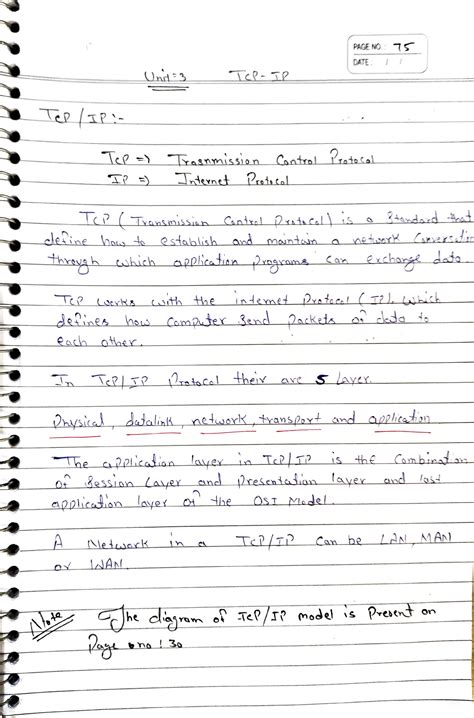 PAGE NO.: 75
DATE: / /
Unit:3 TCP-IP
TCP / IP :-
TCP => Trasnmission Control Protocol
IP => Internet Protocol
TCP (Transmission Control Protocol) is a Standard that
define how to establish and maintain a network Conversation
through which application programs can exchange data.
TCP works with the internet Protocol (IP), which
defines how Computer Send Packets of data to
each other.
In TCP/IP Protocol their are 5 Layer.
Physical, datalink, network, transport and application
The application layer in TCP/IP is the Combination
of Session Layer and Presentation layer and last
application layer of the OSI Model.
A Network in a TCP/IP Can be LAN, MAN
or WAN.
Note The diagram of TCP/IP model is Present on
Page no : 30